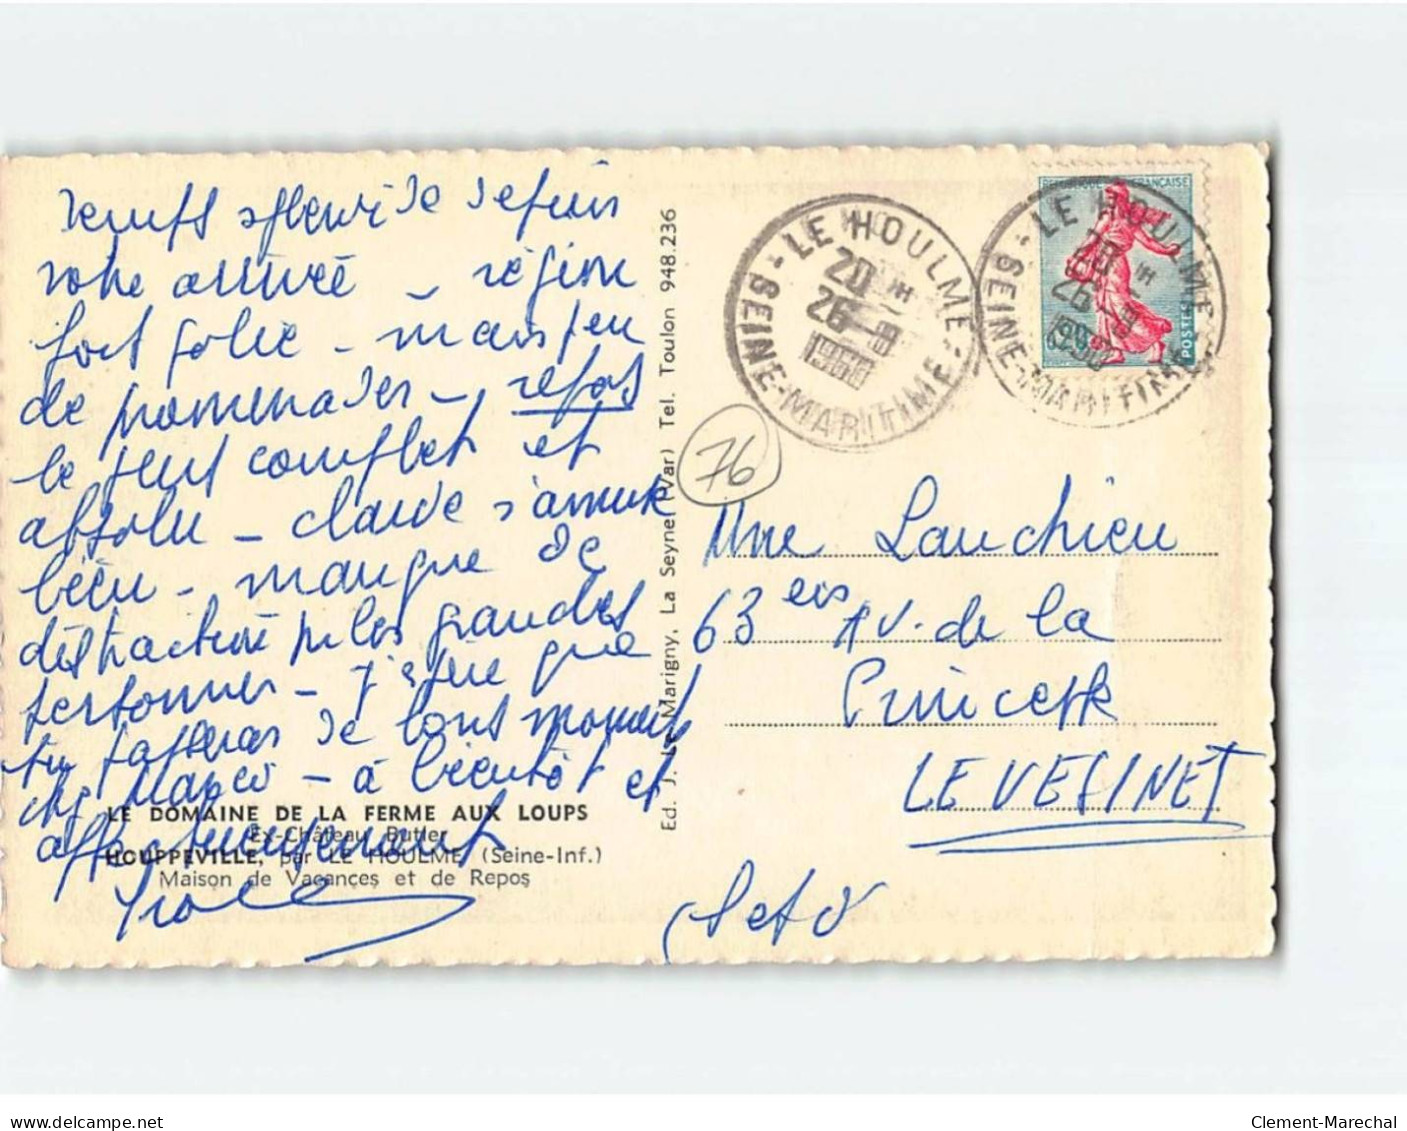 Temps splendide depuis
notre arrivée – région
fort jolie – mais peu
de promenades – repos
le plus complet et
absolu – Claude s'amuse
bien – manque de
distractions pr les grandes
personnes – J'espère que
tu passeras de bons moments
chez – à bientôt et
affectueusement
LE DOMAINE DE LA FERME AUX LOUPS
Ex-Château Butler
HOUPPEVILLE, par LE HOULME (Seine-Inf.)
Maison de Vacances et de Repos
Ed. J. Le Marigny, La Seyne (Var) Tel. Toulon 948.236
76
LE HOULME
20 H
26-9
1960
SEINE-MARITIME
LE HOULME
20 H
26
1960
SEINE-MARITIME
REPUBLIQUE FRANÇAISE
POSTES
Mme Lauchieu
63 Av. de la
Princesse
LE VESINET
(Set O)
Clement-Marechal